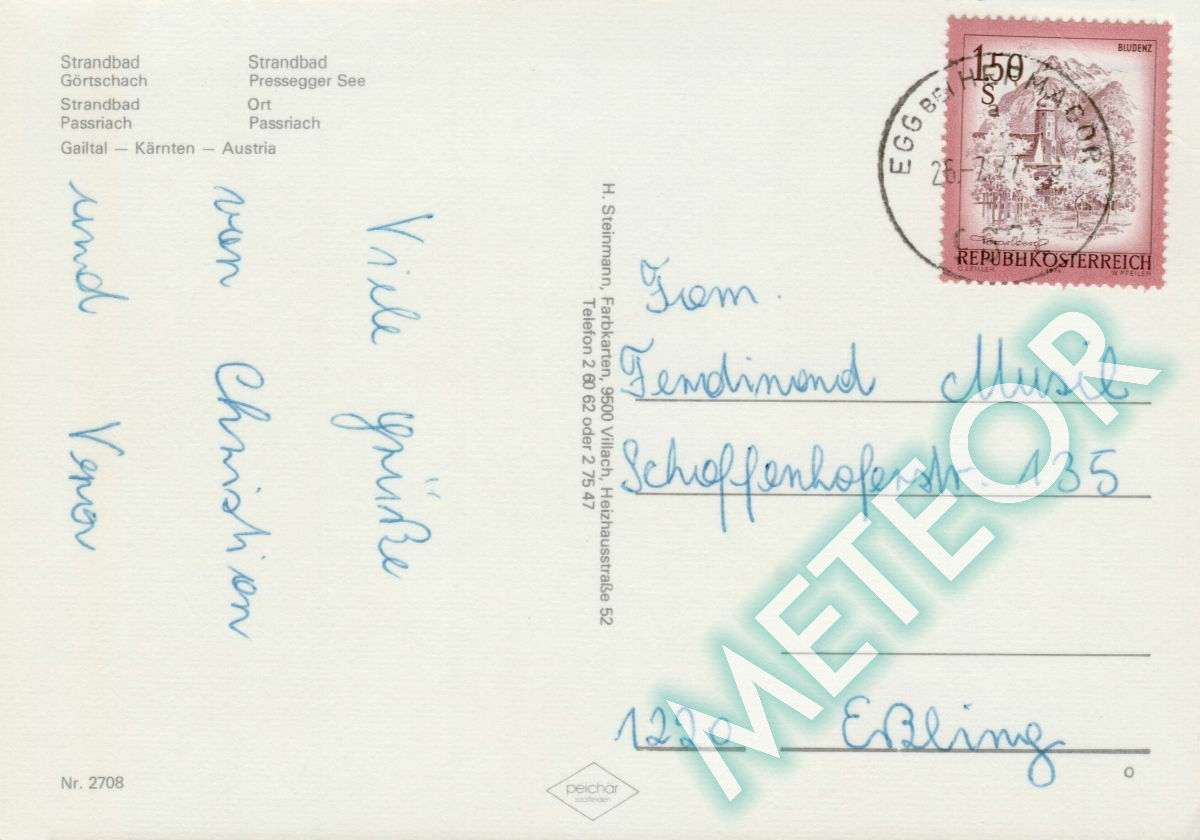 Strandbad
Görtschach
Strandbad
Pressegger See
Strandbad
Passriach
Ort
Passriach
Gailtal — Kärnten — Austria
Viele grüße
von Christian
und Vera
H. Steinmann, Farbkarten, 9500 Villach, Heizhausstraße 52
Telefon 2 60 62 oder 2 75 47
BLUDENZ
1.50
S
EGG BEI HERMAGOR
a
26.-7.77
REPUBLIK ÖSTERREICH
O. ZEILLER 1974 W. PFEILER
Fam.
Ferdinand Musil
Schaffenhoferstr. 135
1220 Eßling
METEOR
Nr. 2708
peichär
saalfelden
o